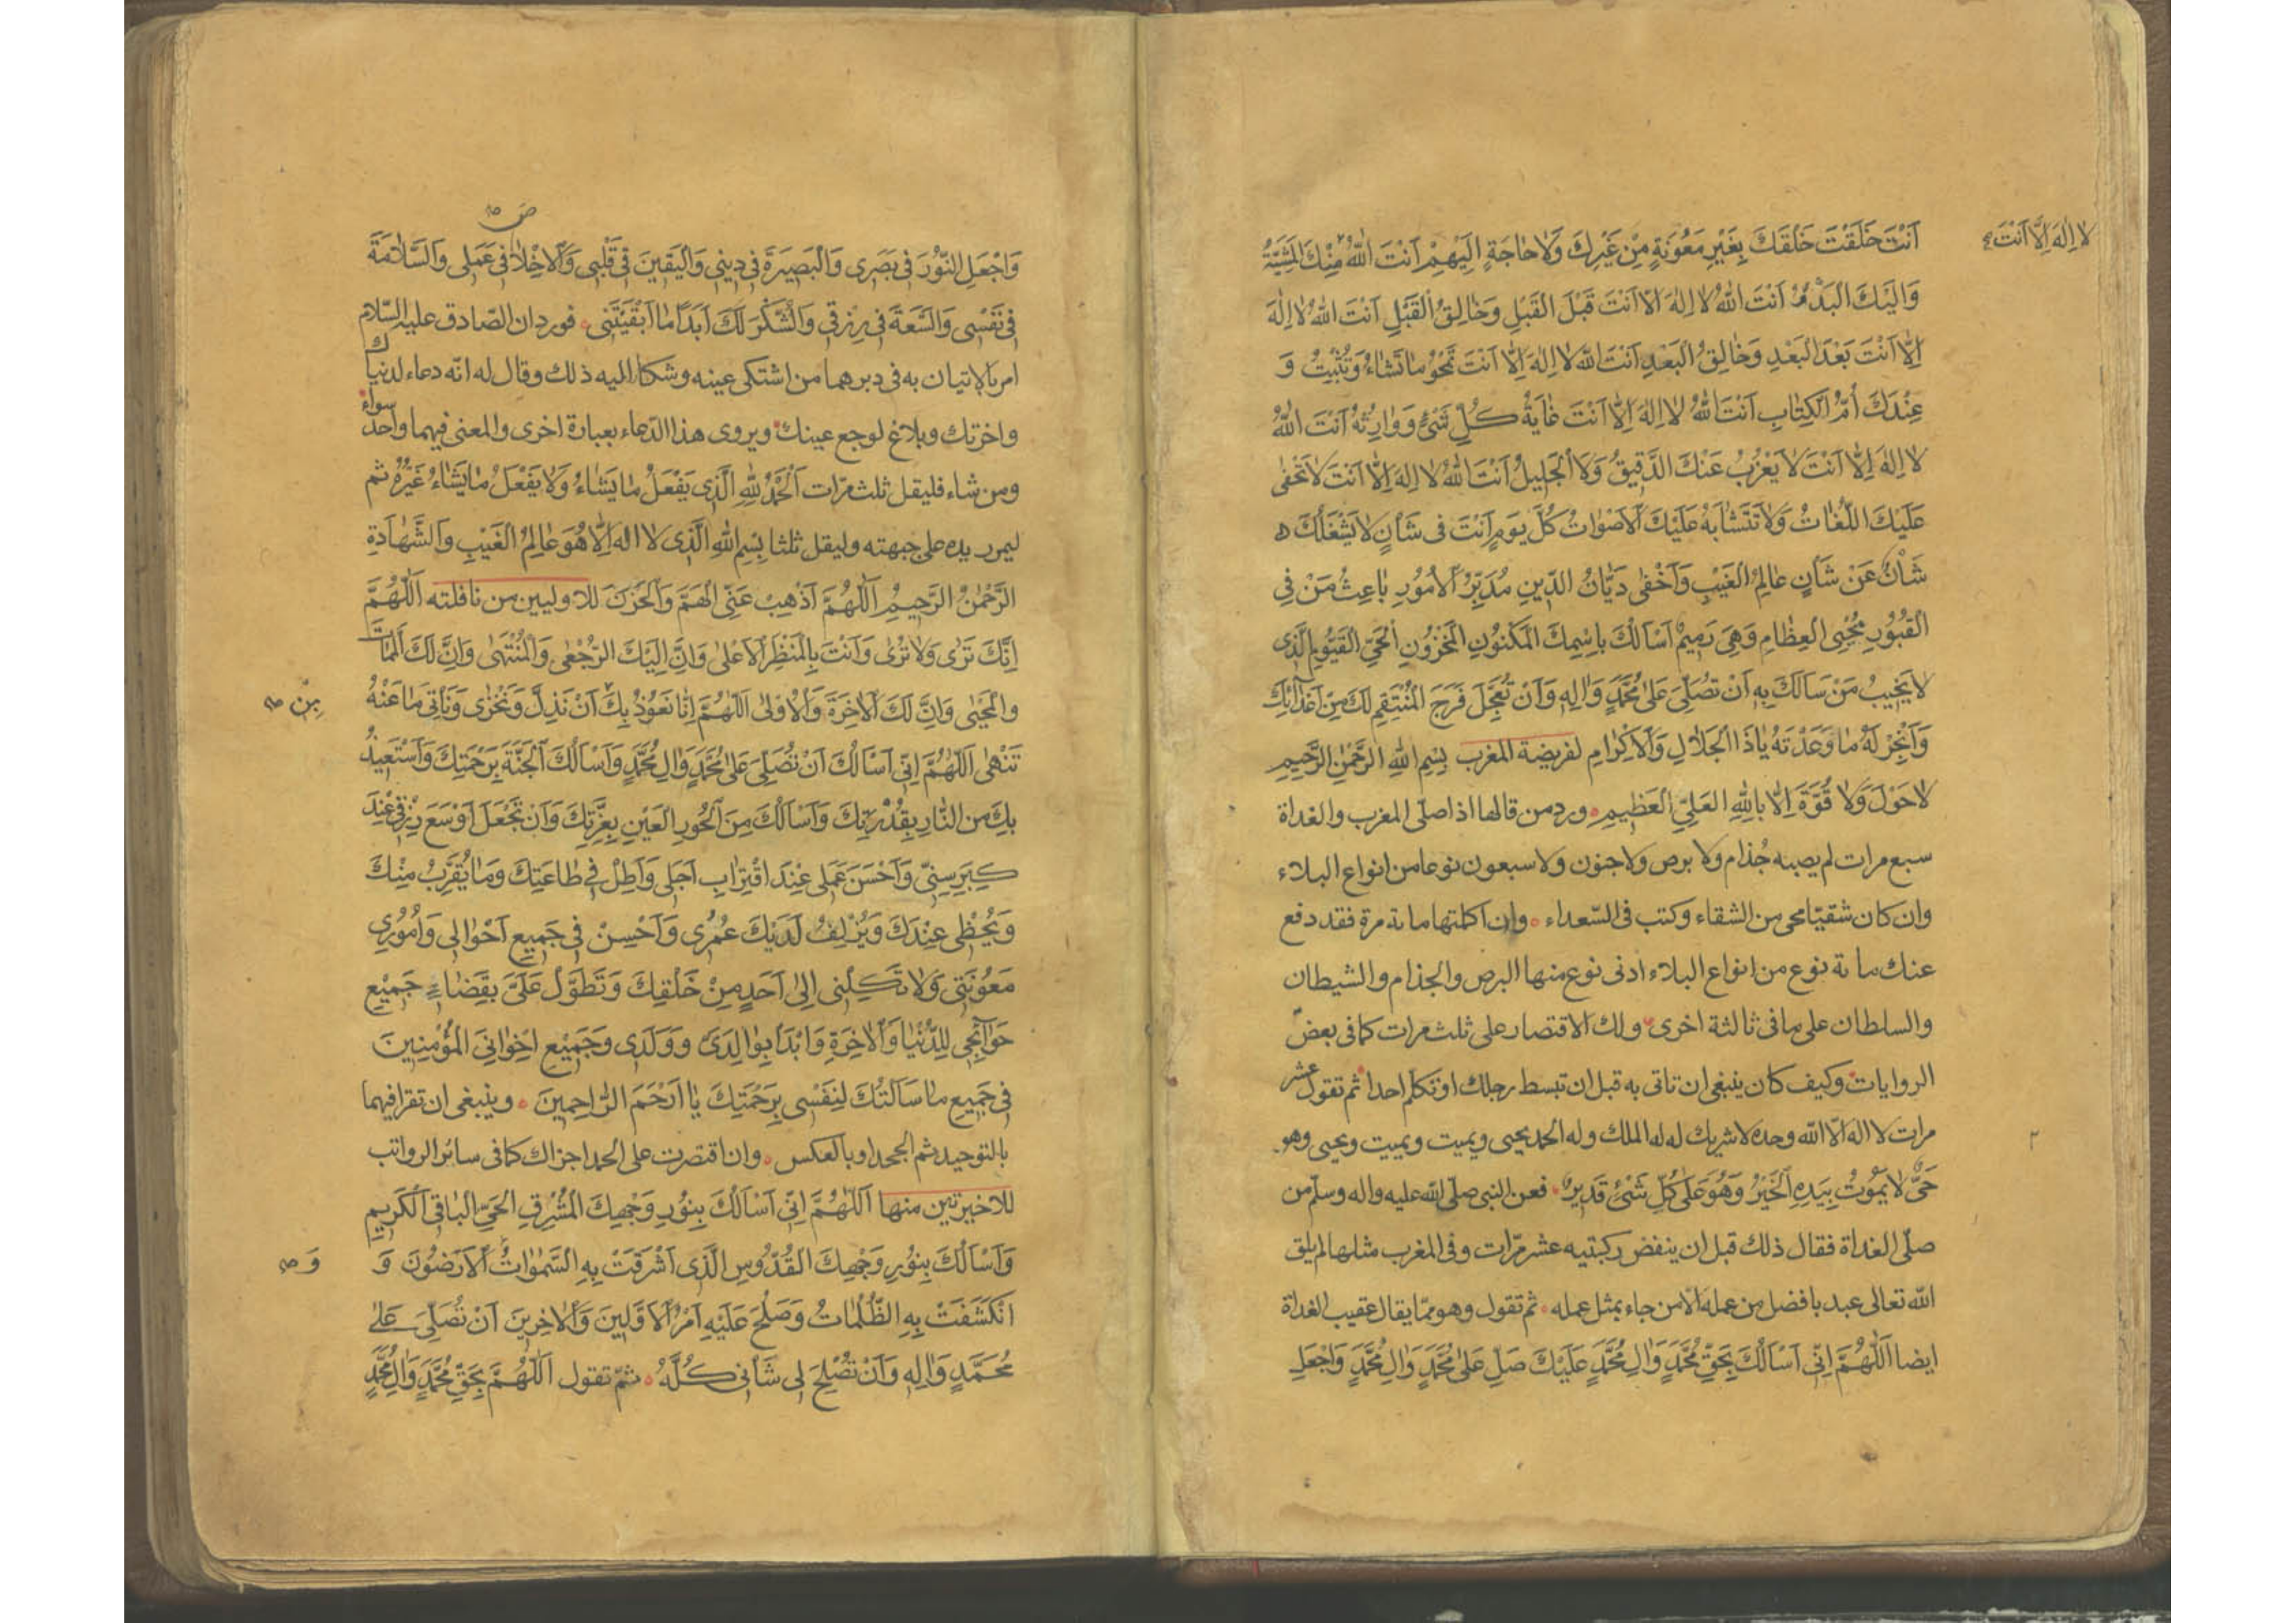 لا اِلٰهَ اِلَّا اَنْتَ
اَنْتَ خَلَقْتَ خَلْقَكَ بِغَيْرِ مَعُونَةٍ مِنْ غَيْرِكَ وَلَا حَاجَةٍ اِلَيْهِمْ اَنْتَ اللّٰهُ مِنْكَ الْمَشِيَّةُ
وَاِلَيْكَ الْبَدْءُ اَنْتَ اللّٰهُ لَا اِلٰهَ اِلَّا اَنْتَ قَبْلَ الْقَبْلِ وَخَالِقُ الْقَبْلِ اَنْتَ اللّٰهُ لَا اِلٰهَ
اِلَّا اَنْتَ بَعْدَ الْبَعْدِ وَخَالِقُ الْبَعْدِ اَنْتَ اللّٰهُ لَا اِلٰهَ اِلَّا اَنْتَ تَمْحُو مَا تَشَاءُ وَتُثْبِتُ وَ
عِنْدَكَ اُمُّ الْكِتَابِ اَنْتَ اللّٰهُ لَا اِلٰهَ اِلَّا اَنْتَ غَايَةُ كُلِّ شَيْءٍ وَوَارِثُهُ اَنْتَ اللّٰهُ
لَا اِلٰهَ اِلَّا اَنْتَ لَا يَعْزُبُ عَنْكَ الدَّقِيقُ وَلَا الْجَلِيلُ اَنْتَ اللّٰهُ لَا اِلٰهَ اِلَّا اَنْتَ لَا تَخْفٰى
عَلَيْكَ اللُّغَاتُ وَلَا تَتَشَابَهُ عَلَيْكَ الْاَصْوَاتُ كُلَّ يَوْمٍ اَنْتَ فِى شَأْنٍ لَا يَشْغَلُكَ
شَأْنٌ عَنْ شَأْنٍ عَالِمُ الْغَيْبِ وَاَخْفٰى دَيَّانُ الدِّينِ مُدَبِّرُ الْاُمُورِ بَاعِثُ مَنْ فِى
الْقُبُورِ مُحْيِى الْعِظَامِ وَهِيَ رَمِيمٌ اَسْأَلُكَ بِاسْمِكَ الْمَكْنُونِ الْمَخْزُونِ الْحَيِّ الْقَيُّومِ الَّذِى
لَا يَخِيبُ مَنْ سَأَلَكَ بِهِ اَنْ تُصَلِّىَ عَلٰى مُحَمَّدٍ وَاٰلِهِ وَاَنْ تُعَجِّلَ فَرَجَ الْمُنْتَقِمِ لَكَ مِنْ اَعْدَائِكَ
وَاَنْجِزْ لَهُ مَا وَعَدْتَهُ يَا ذَا الْجَلَالِ وَالْاِكْرَامِ لفريضة المغرب بِسْمِ اللّٰهِ الرَّحْمٰنِ الرَّحِيمِ
لَا حَوْلَ وَلَا قُوَّةَ اِلَّا بِاللّٰهِ الْعَلِىِّ الْعَظِيمِ ورد من قالها اذا صلّى المغرب والغداة
سبع مرات لم يصبه جُذام ولا برص ولا جنون ولا سبعون نوعا من انواع البلاء
وان كان شقيّا محى من الشقاء وكتب فى السّعداء وان اكملتها مائة مرة فقد دفع
عنك مائة نوع من انواع البلاء ادنى نوع منها البرص والجذام والشيطان
والسلطان على ما فى ثالثة اخرى ولك الاقتصار على ثلث مرات كما فى بعض
الروايات وكيف كان ينبغى ان تاتى به قبل ان تبسط رجلك او تكلم احدا ثم تقول عشر
مرات لا اله الّا اللّه وحده لا شريك له له الملك وله الحمد يحيى ويميت ويميت ويحيى وهو
حَىٌّ لَا يَمُوتُ بِيَدِهِ الْخَيْرُ وَهُوَ عَلٰى كُلِّ شَيْءٍ قَدِيرٌ فعن النبى صلّى اللّه عليه واله وسلّم من
صلّى الغداة فقال ذلك قبل ان ينفض ركبتيه عشر مرّات وفى المغرب مثلها لم يلق
اللّه تعالى عبد بافضل من عمله الّا من جاء بمثل عمله ثم تقول وهو ممّا يقال عقيب الغداة
ايضا اَللّٰهُمَّ اِنِّى اَسْأَلُكَ بِحَقِّ مُحَمَّدٍ وَاٰلِ مُحَمَّدٍ عَلَيْكَ صَلِّ عَلٰى مُحَمَّدٍ وَاٰلِ مُحَمَّدٍ وَاجْعَلِ
وَاجْعَلِ النُّورَ فِى بَصَرِى وَالْبَصِيرَةَ فِى دِينِى وَالْيَقِينَ فِى قَلْبِى وَالْاِخْلَاصَ فِى عَمَلِى وَالسَّلَامَةَ
فِى نَفْسِى وَالسَّعَةَ فِى رِزْقِى وَالشُّكْرَ لَكَ اَبَدًا مَا اَبْقَيْتَنِى فورد ان الصّادق عليه السّلام
امر بالاتيان به فى دبرهما من اشتكى عينه وشكا اليه ذلك وقال له انّه دعاء لدنياك
واخرتك وبلاغ لوجع عينك ويروى هذا الدّعاء بعبارة اخرى والمعنى فيهما واحد سواء
ومن شاء فليقل ثلث مرّات اَلْحَمْدُ لِلّٰهِ الَّذِى يَفْعَلُ مَا يَشَاءُ وَلَا يَفْعَلُ مَا يَشَاءُ غَيْرُهُ ثم
ليمرر يده على جبهته وليقل ثلثا بِسْمِ اللّٰهِ الَّذِى لَا اِلٰهَ اِلَّا هُوَ عَالِمُ الْغَيْبِ وَالشَّهَادَةِ
الرَّحْمٰنُ الرَّحِيمُ اَللّٰهُمَّ اَذْهِبْ عَنِّى الْهَمَّ وَالْحَزَنَ للاوليين من نافلته اَللّٰهُمَّ
اِنَّكَ تَرٰى وَلَا تُرٰى وَاَنْتَ بِالْمَنْظَرِ الْاَعْلٰى وَاِنَّ اِلَيْكَ الرُّجْعٰى وَالْمُنْتَهٰى وَاِنَّ لَكَ الْمَمَاتَ
والْمَحْيٰى وَاِنَّ لَكَ الْاٰخِرَةَ وَالْاُولٰى اَللّٰهُمَّ اِنَّا نَعُوذُ بِكَ اَنْ نَذِلَّ وَنَخْزٰى وَنَأْتِىَ مَا عَنْهُ
مِنْ
تَنْهٰى اَللّٰهُمَّ اِنِّى اَسْأَلُكَ اَنْ تُصَلِّىَ عَلٰى مُحَمَّدٍ وَاٰلِ مُحَمَّدٍ وَاَسْأَلُكَ الْجَنَّةَ بِرَحْمَتِكَ وَاَسْتَعِيذُ
بِكَ مِنَ النَّارِ بِقُدْرَتِكَ وَاَسْأَلُكَ مِنَ الْحُورِ الْعِينِ بِعِزَّتِكَ وَاَنْ تَجْعَلَ اَوْسَعَ رِزْقِى عِنْدَ
كِبَرِ سِنِّى وَاَحْسَنَ عَمَلِى عِنْدَ اقْتِرَابِ اَجَلِى وَاَطِلْ فِى طَاعَتِكَ وَمَا يُقَرِّبُ مِنْكَ
وَيُحْظِى عِنْدَكَ وَيُزْلِفُ لَدَيْكَ عُمُرِى وَاَحْسِنْ فِى جَمِيعِ اَحْوَالِى وَاُمُورِى
مَعُونَتِى وَلَا تَكِلْنِى اِلٰى اَحَدٍ مِنْ خَلْقِكَ وَتَطَوَّلْ عَلَىَّ بِقَضَاءِ جَمِيعِ
حَوَائِجِى لِلدُّنْيَا وَالْاٰخِرَةِ وَابْدَأْ بِوَالِدَىَّ وَوَلَدِى وَجَمِيعِ اِخْوَانِىَ الْمُؤْمِنِينَ
فِى جَمِيعِ مَا سَأَلْتُكَ لِنَفْسِى بِرَحْمَتِكَ يَا اَرْحَمَ الرَّاحِمِينَ وينبغى ان تقرا فيهما
بالتوحيد ثم الجحد او بالعكس وان اقتصرت على الحمد اجزاك كما فى سائر الرواتب
للاخيرتين منها اَللّٰهُمَّ اِنِّى اَسْأَلُكَ بِنُورِ وَجْهِكَ الْمُشْرِقِ الْحَىِّ الْبَاقِى الْكَرِيمِ
وَاَسْأَلُكَ بِنُورِ وَجْهِكَ الْقُدُّوسِ الَّذِى اَشْرَقَتْ بِهِ السَّمٰوَاتُ الْاَرَضُونَ وَ
وَ
انْكَشَفَتْ بِهِ الظُّلُمَاتُ وَصَلُحَ عَلَيْهِ اَمْرُ الْاَوَّلِينَ وَالْاٰخِرِينَ اَنْ تُصَلِّىَ عَلٰى
مُحَمَّدٍ وَاٰلِهِ وَاَنْ تُصْلِحَ لِى شَأْنِى كُلَّهُ ثمّ تقول اَللّٰهُمَّ بِحَقِّ مُحَمَّدٍ وَاٰلِ مُحَمَّدٍ